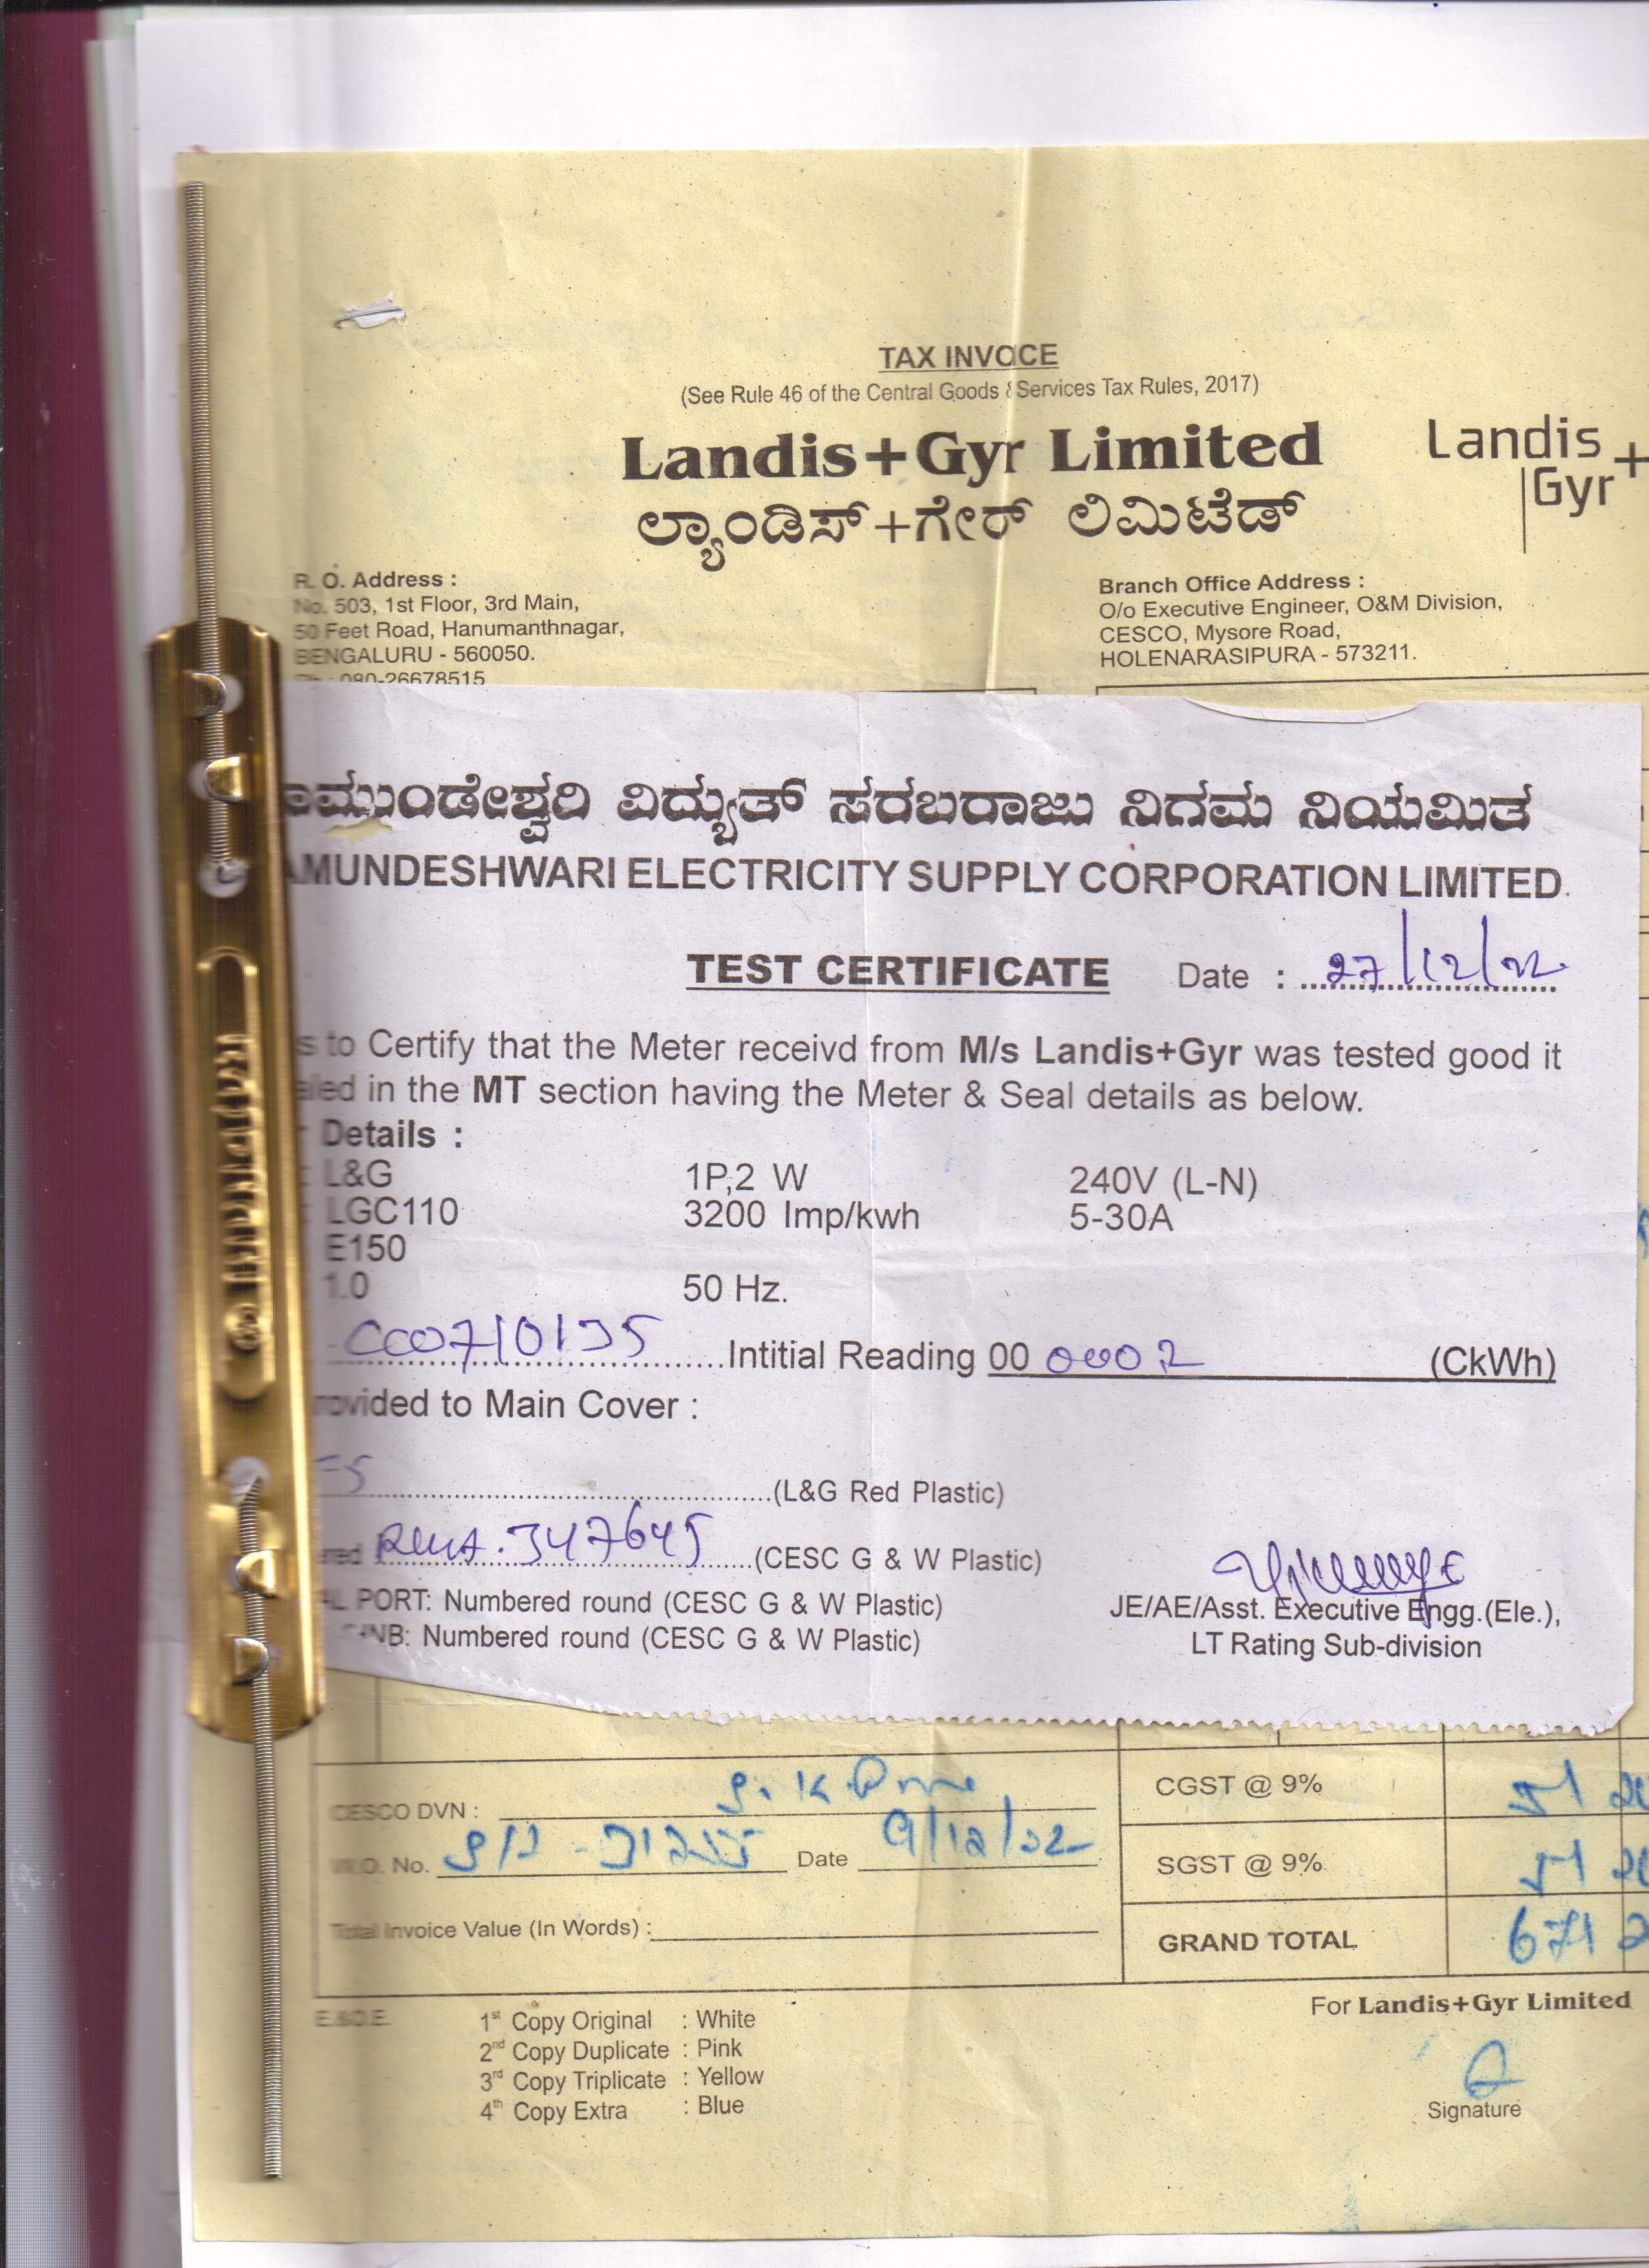 TAX INVOCE
(See Rule 46 of the Central Goods & Services Tax Rules, 2017)
Landis+Gyr Limited
ಲ್ಯಾಂಡಿಸ್+ಗೇರ್ ಲಿಮಿಟೆಡ್
Landis+
Gyr
R. O. Address :
No. 503, 1st Floor, 3rd Main,
50 Feet Road, Hanumanthnagar,
BENGALURU - 560050.
Ph : 080-26678515
Branch Office Address :
O/o Executive Engineer, O&M Division,
CESCO, Mysore Road,
HOLENARASIPURA - 573211.
ಾಮುಂಡೇಶ್ವರಿ ವಿದ್ಯುತ್ ಸರಬರಾಜು ನಿಗಮ ನಿಯಮಿತ
AMUNDESHWARI ELECTRICITY SUPPLY CORPORATION LIMITED.
TEST CERTIFICATE Date : 27/12/22
s to Certify that the Meter receivd from M/s Landis+Gyr was tested good it
aled in the MT section having the Meter & Seal details as below.
Details :
L&G 1P,2 W 240V (L-N)
LGC110 3200 Imp/kwh 5-30A
E150
1.0 50 Hz.
Intitial Reading 00 0002 (CkWh)
rovided to Main Cover :
(L&G Red Plastic)
347645 (CESC G & W Plastic)
AL PORT: Numbered round (CESC G & W Plastic)
NB: Numbered round (CESC G & W Plastic)
JE/AE/Asst. Executive Engg.(Ele.),
LT Rating Sub-division
CESCO DVN :
W.O. No. Date 9/12/22
Total Invoice Value (In Words) :
CGST @ 9%
SGST @ 9%
GRAND TOTAL 671
E.&O.E.
1st Copy Original : White
2nd Copy Duplicate : Pink
3rd Copy Triplicate : Yellow
4th Copy Extra : Blue
For Landis+Gyr Limited
Signature